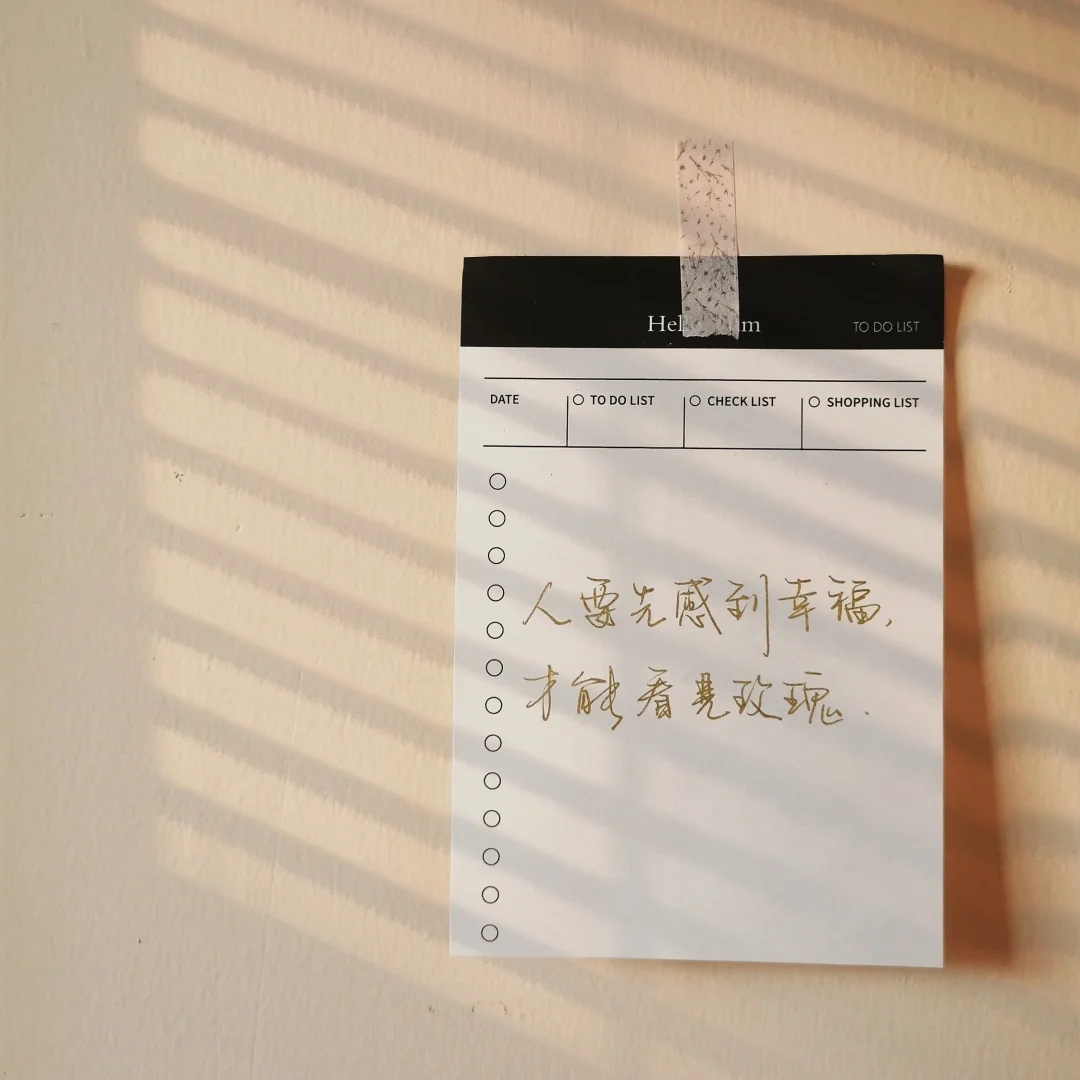 TO DO LIST
DATE TO DO LIST CHECK LIST SHOPPING LIST
人要先感到幸福,
才能看見玫瑰.